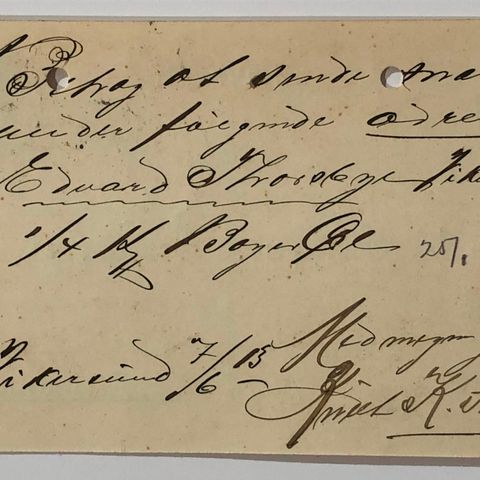 Behag at sende
under følgende adre
Edvard Thorsbye Vike
1/4 Bayer Øl 25/.
Vikersund 7/6 13
Knut K.